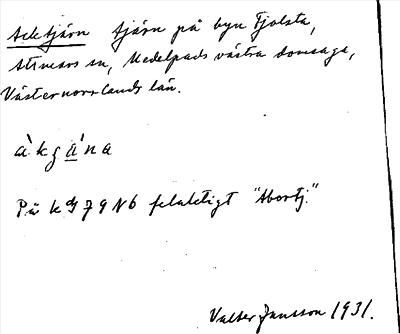 Acktjärn tjärn på byn Fjolsta,
Attmars sn, Medelpads västra domsaga,
Västernorrlands län.
àkgána
På k 79 NÖ felaktigt "Abortj."
Valter Jansson 1931.